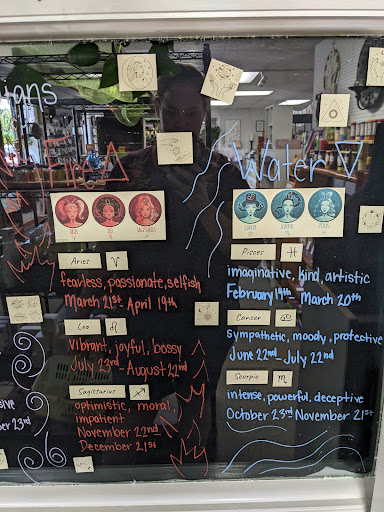 Fire
Water
ARIES
LEO
SAGITTARIUS
CANCER
SCORPIO
PISCES
Aries ♈
fearless, passionate, selfish
March 21st - April 19th
Leo ♌
vibrant, joyful, bossy
July 23rd - August 22nd
Sagittarius ♐
optimistic, moral,
impatient
November 22nd
December 21st
Pisces ♓
imaginative, kind, artistic
February 19th - March 20th
Cancer ♋
sympathetic, moody, protective
June 22nd - July 22nd
Scorpio ♏
intense, powerful, deceptive
October 23rd November 21st